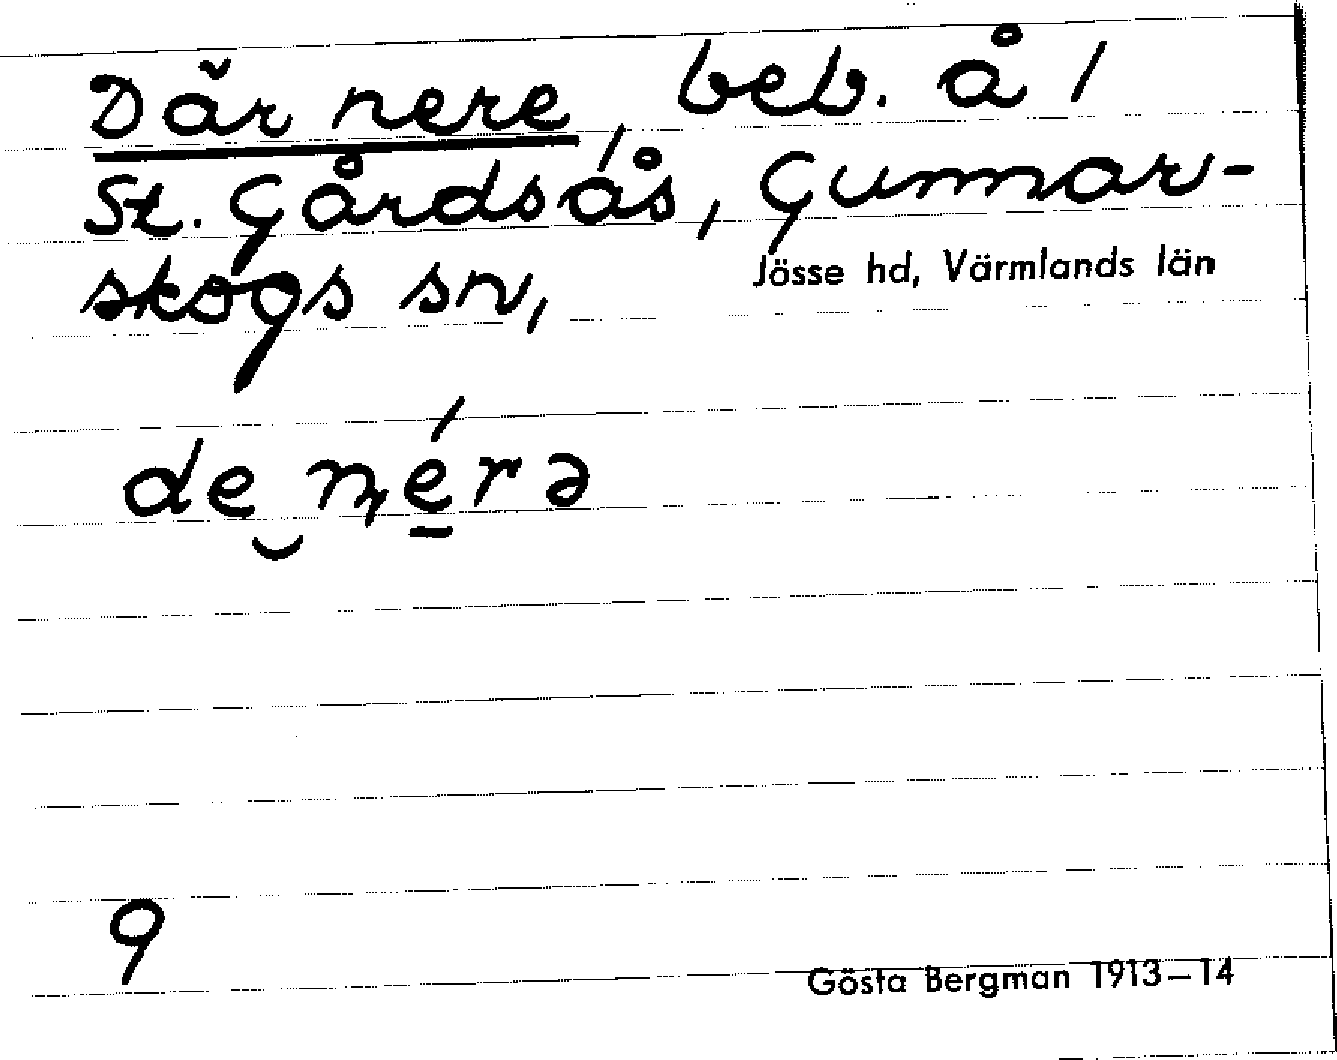 Där nere, beb. å 1/
St. Gårdsås, Gunnar-
skogs sn, Jösse hd, Värmlands län
de‿ɳérə
9
Gösta Bergman 1913—14